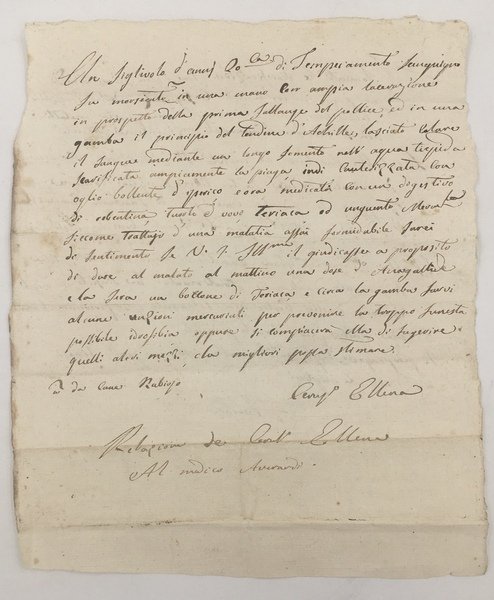 Un figlivolo d'anni 20 ca di Temperamento sanguigno
fu morsicato in una mano con ampia lacerazione
in prospetto della prima fallange del pollice, ed in una
gamba il principio del tendine d'Achille, lasciato colare
il sangue mediante un longo fomento nell'acqua tiepida
scarificata ampiamente la piaga indi cauterizzata con
oglio bollente d'iperico e ora medicata con un digestivo
di terbentina tuorlo d'vovo teriaca ed unguento
siccome trattasi d'una malatia assai formidabile sarei
di sentimento se V. S. Ill.ma il giudicasse a proposito
di dare al malato al mattino una dose d'Anagallide
e la sera un bollone di Teriaca e circa la gamba farvi
alcune unzioni mercuriali per prevenire la troppo funesta
possibile idrofobia oppure si compiacerà ella di sugerire
quelli altri mezzi, che migliori possa stimare.
da cane Rabioso
Ellena
Relazione de Ellena
Al medico